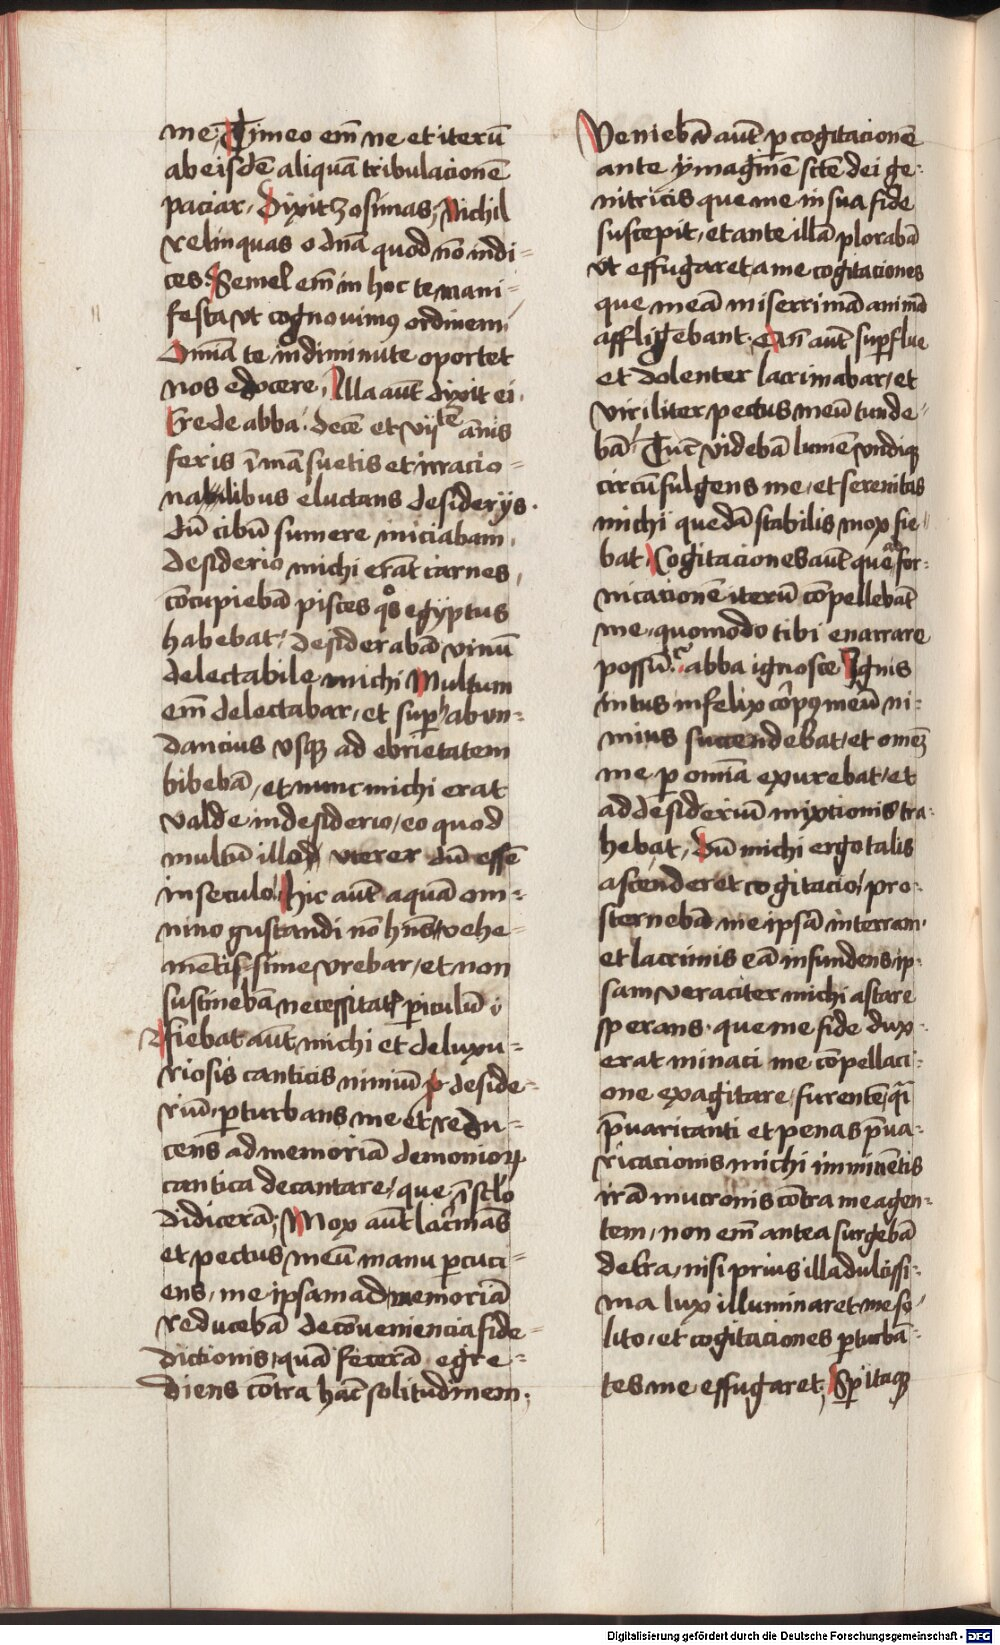 me; Timeo em̄ ne et iterū
ab eisdē aliquā tribulacionē
paciar, Dixit Zosimas, Nichil
relinquas o dn̄a quod nō indi-
ces. Semel em̄ in hoc te mani-
festa vt cognouimꝯ ordinem
Omnia te indiminute oportet
nos edocere, Illa aūt dixit ei.
Crede abba. decē et vij tē ān̄is
feris īmāsuetis et irracio-
nabilibus eluctans desiderijs.
dū cibū sumere iniciabam.
desiderio michi erāt carnes,
cōcupiebā pisces qͦs egyptus
habebat, desiderabā vinū
delectabile michi Multum
em̄ delectabar, et suꝑ abun-
dancius vsqꝫ ad ebrietatem
bibebā, et nunc michi erat
valde in desiderio, eo quod
multū illod vterer dū essē
in seculo, Hic aūt aquā om-
nino gustandi nō hn̄s vehe-
mētissime vrebar, et non
sustinebā necessitatꝭ ꝑiculū
fiebat aūt michi et de luxu-
riosis canticis nimiū deside-
riū, ꝑturbans me et redu-
cens ad memoriā demonioꝝ
cantica decantare, que ī sclo
didicerā; Mox aūt lac̄mās
et pectus meū manu ꝑcuci-
ens, me ipsam ad memoriā
reducebā de cōueniencia fide
dictionis, quā fecerā egre-
diens cōtra hāc solitudinem;
Veniebā aūt ꝑ cogitacionē
ante ymaginē scte dei ge-
nitricis que me in sua fide
suscepit, et ante illā plorabā
vt effugaret a me cogitaciones
que meā miserrimā animā
affligebant. Cān aūt suꝑflue
et dolenter lacrimabar, et
viriliter pectus meū tunde-
bā Tūc videbā lumē vndiqꝫ
circūfulgens me, et serenitas
michi quedā stabilis mox fie-
bat. Cogitaciones aūt que for-
nicacionē iterū cōpellebāt
me, quomodo tibi enarrare
possū. abba ignosce Ignis
intus infelix corpꝯ meū ni-
mius succendebat, et omēs
me ꝑ omīa exurebat, et
ad desideriū mixtionis tra-
hebat, Dū michi ergo talis
ascenderet cogitacio, pro-
sternebā me ipsā in terram.
et lacrimis eā infundens, ip-
sam veraciter michi astare
sperans. que me fide dux-
erat minaci me cōpellaci-
one exagitare, furentē qͣ
p̄uaricanti et penas p̄ua-
ricacionis michi imminētis
irā mucronis cōtra me agen-
tem, non em̄ antea surgebā
de t̄ra, nisi prius illa dulcissi-
ma lux illuminaret me so-
lito, et cogitaciones ꝑturbā-
tes me effugaret; Sꝑ itaqꝫ
Digitalisierung gefördert durch die Deutsche Forschungsgemeinschaft - DFG